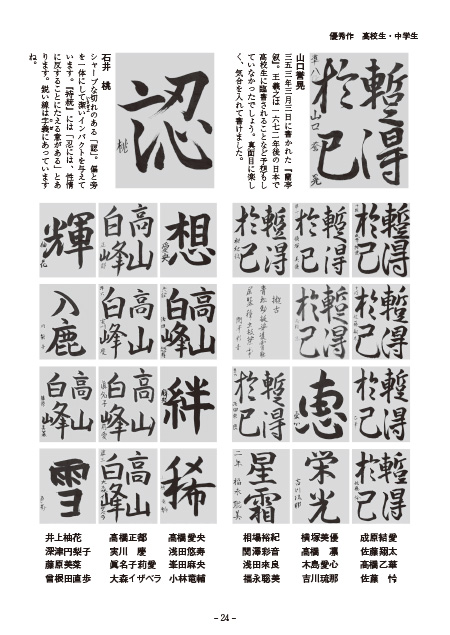 優秀作　高校生・中学生
暫得
於己
山口誉晃
三五三年三月三日に書かれた『蘭亭
叙』。王羲之は一六七二年後の日本で
高校生に臨書されることなど予想もし
ていなかったでしょう。真面目に楽し
く、気合を入れて書けました。
認
桃
石井　桃
シャープな切れのある「認」。偏と旁
を一体にして深いインパクトを与えて
います。『字統』には「忍には、性情
に反することにたえる意がある」とあ
ります。鋭い線は字義にあっています
ね。
暫得
於己
暫得
於己
暫得
於己
想
高山
白峰
輝
暫得
於己
暫得
於己
擬古
高山
白峰
高山
白峰
入鹿
暫得
於己
恵
暫得
於己
絆
高山
白峰
高山
白峰
暫得
於己
栄光
星霜
二年　福永聡美
稀
高山
白峰
雪
成原結愛
佐藤翔太
高橋乙華
佐藤　怜
横塚美優
高橋　凛
木島愛心
吉川琉那
相場裕紀
関澤彩音
浅田来良
福永聡美
高橋愛央
浅田悠寿
峯田麻央
小林竜輔
高橋正都
実川　慶
眞名子莉愛
大森イザベラ
井上柚花
深津円梨子
藤原美菜
曽根田直歩
– 24 –